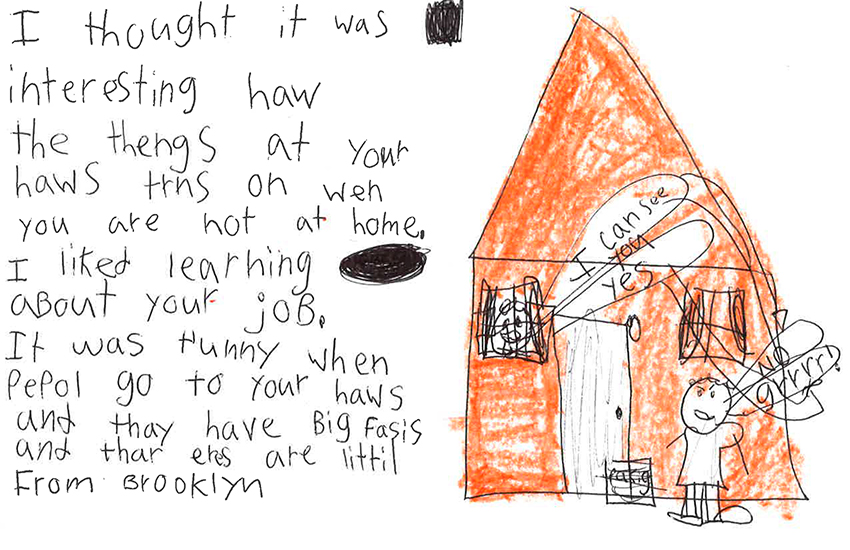 I thought it was
interesting haw
the thengs at your
haws trns on weh
you are not at home.
I liked learning
aBout your joB.
It was funny when
PePol go to your haws
and thay have Big Fasis
and thar ers are littil
From Brooklyn
I can see
you
yes
no
grrrr!